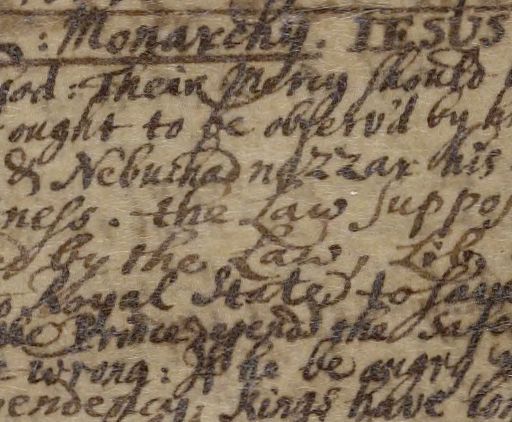 : Monarchy. IESUS
God: Their Mercy should
ought to be observ'd by
& Nebuchadnezzar his
ness. the Law suppos
by the Law, Lib
Royal State, to
the Prince depends the Safe
wrong: If he be angry,
pendency; Kings have lon